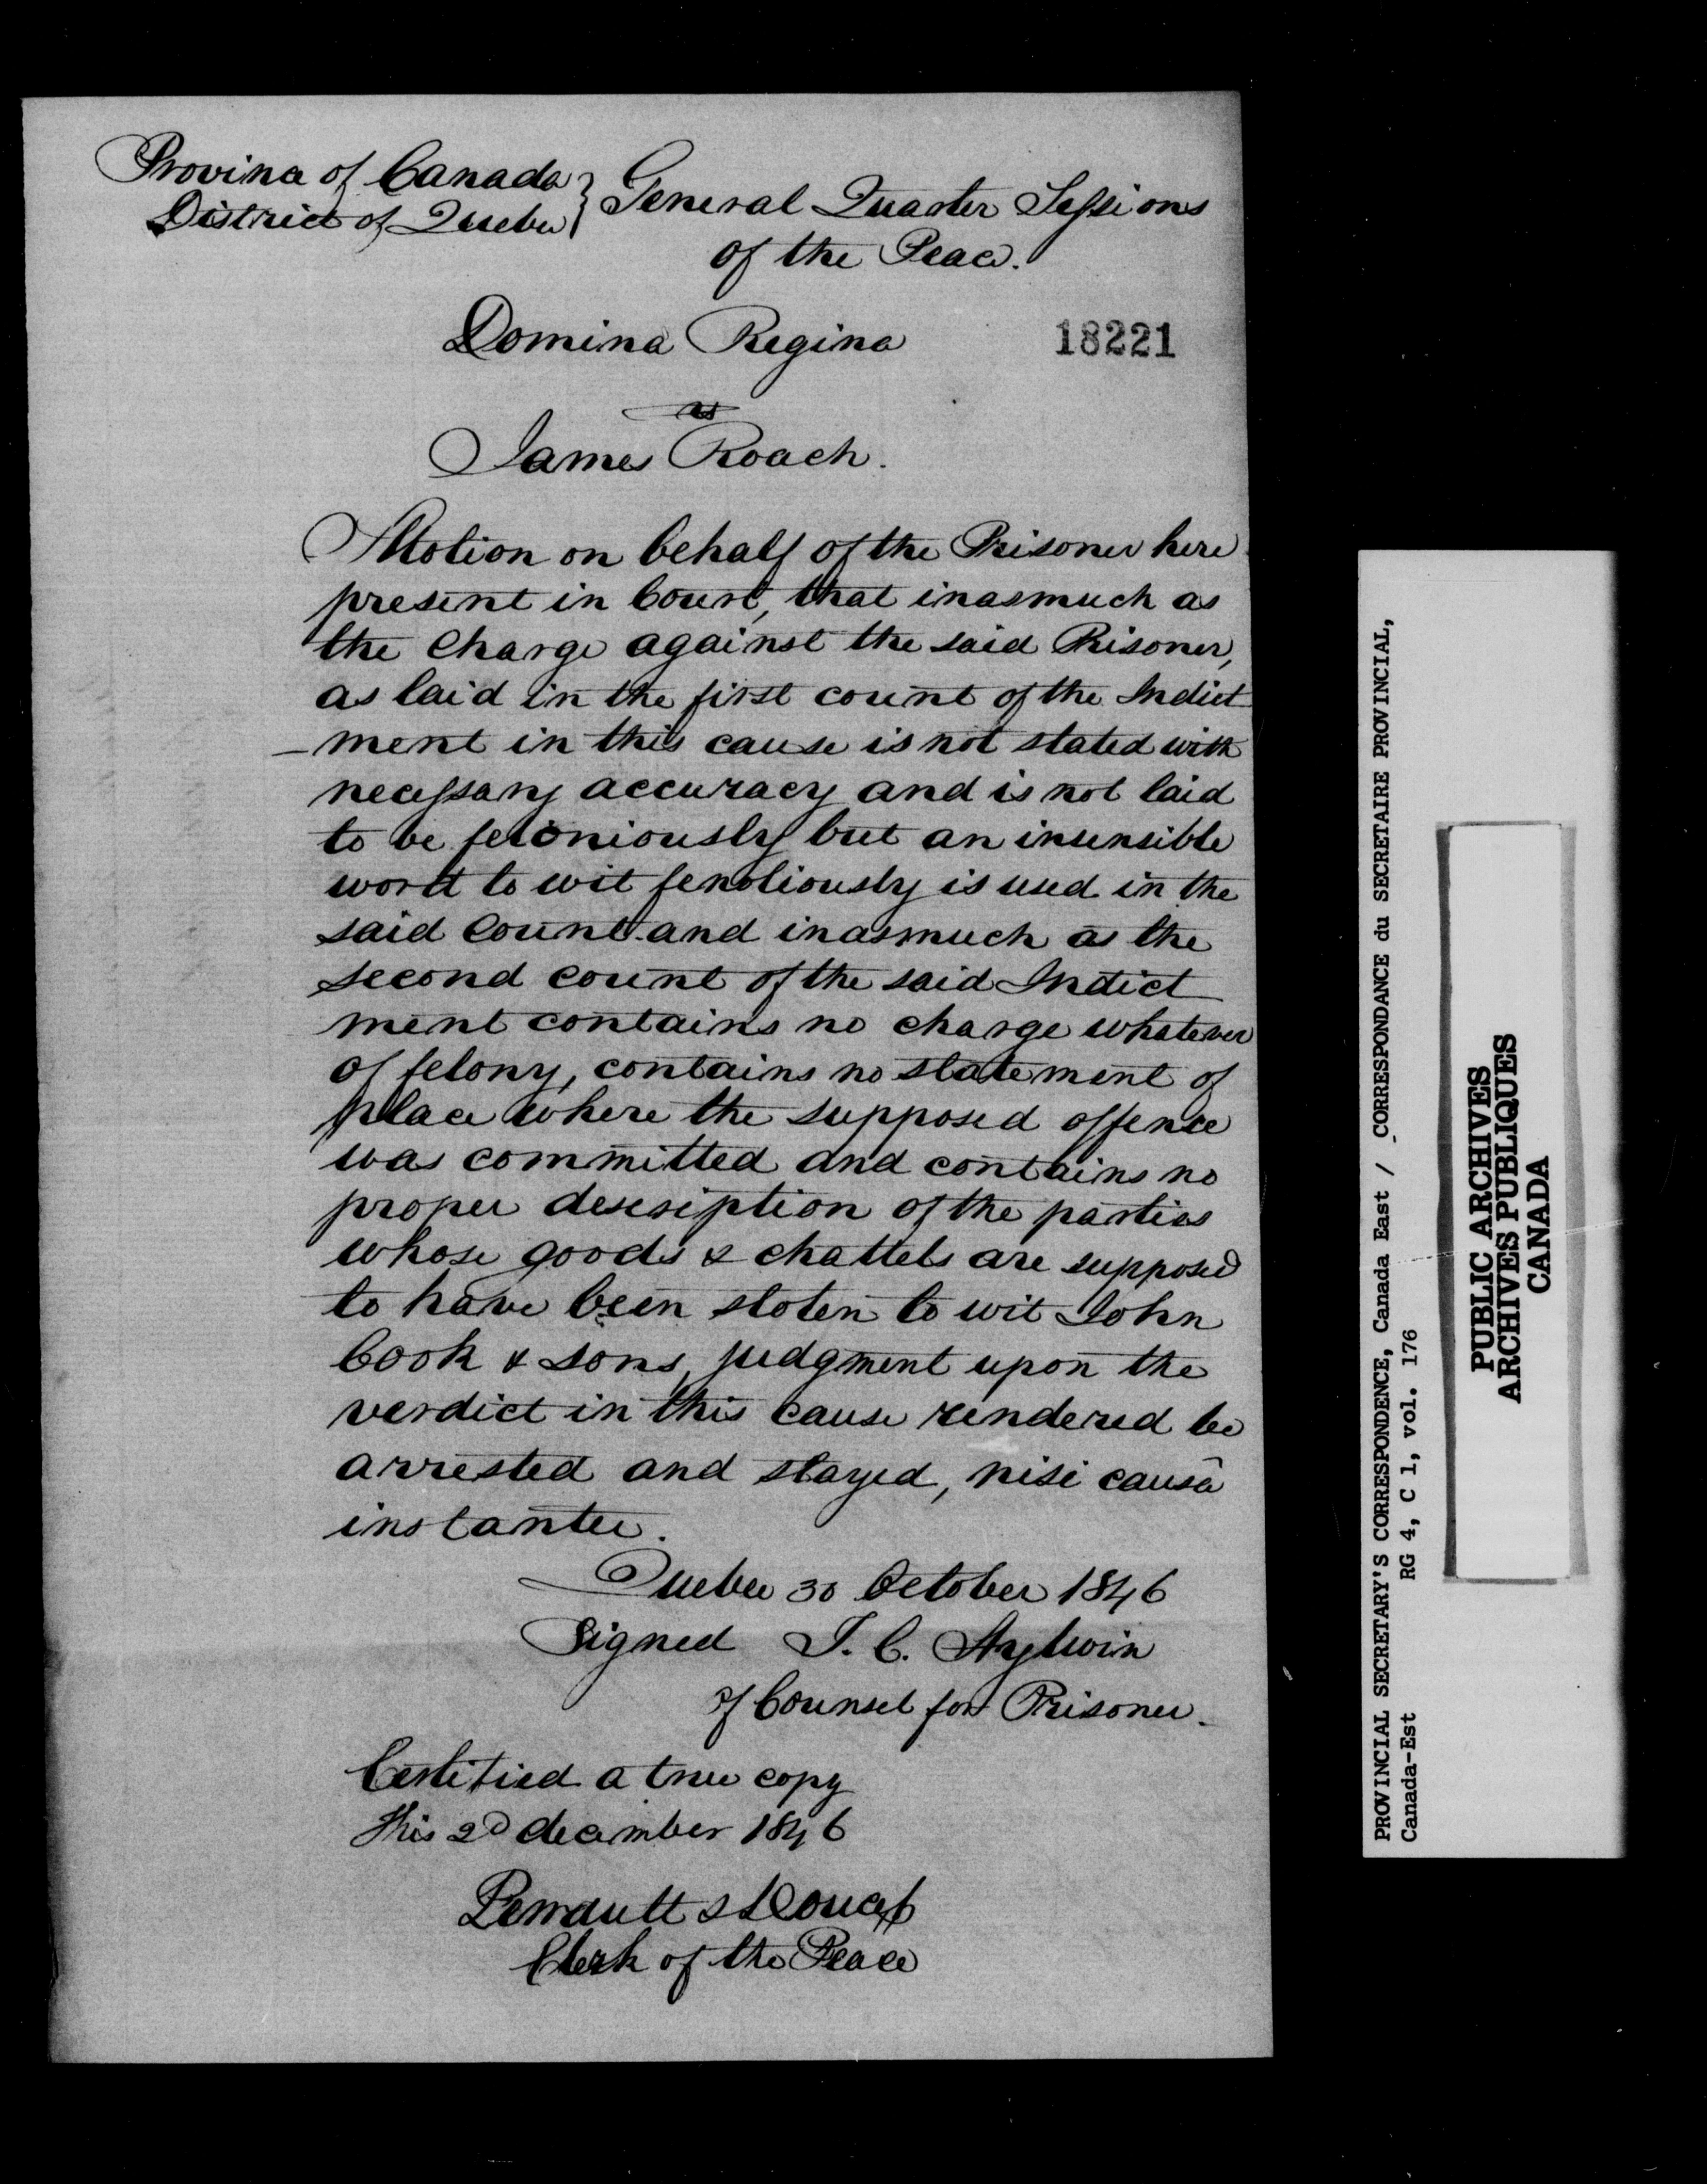 Province of Canada } General Quarter Sessions
District of Quebec } of the Peace.
Domina Regina
18221
vs
James Roach.
Motion on behalf of the Prisoner here
present in Court, that inasmuch as
the Charge against the said Prisoner,
as laid in the first count of the Indict
-ment in this cause is not stated with
necessary accuracy and is not laid
to be feloniously but an insensible
word to wit fenoliously is used in the
said Count and inasmuch as the
second count of the said Indict
ment contains no charge whatever
of felony, contains no statement of
place where the supposed offence
was committed and contains no
proper description of the parties
whose goods & chattels are supposed
to have been stolen to wit John
Cook & sons, judgment upon the
verdict in this cause rendered be
arrested and stayed, nisi causa
instanter.
Quebec 30 October 1846
Signed T. C. Aylwin
of Counsel for Prisoner.
Certified a true copy
This 2d december 1846
Perrault & Doucet
Clerk of the Peace
PROVINCIAL SECRETARY'S CORRESPONDENCE, Canada East / CORRESPONDANCE du SECRETAIRE PROVINCIAL,
Canada-Est RG 4, C 1, vol. 176
PUBLIC ARCHIVES
ARCHIVES PUBLIQUES
CANADA